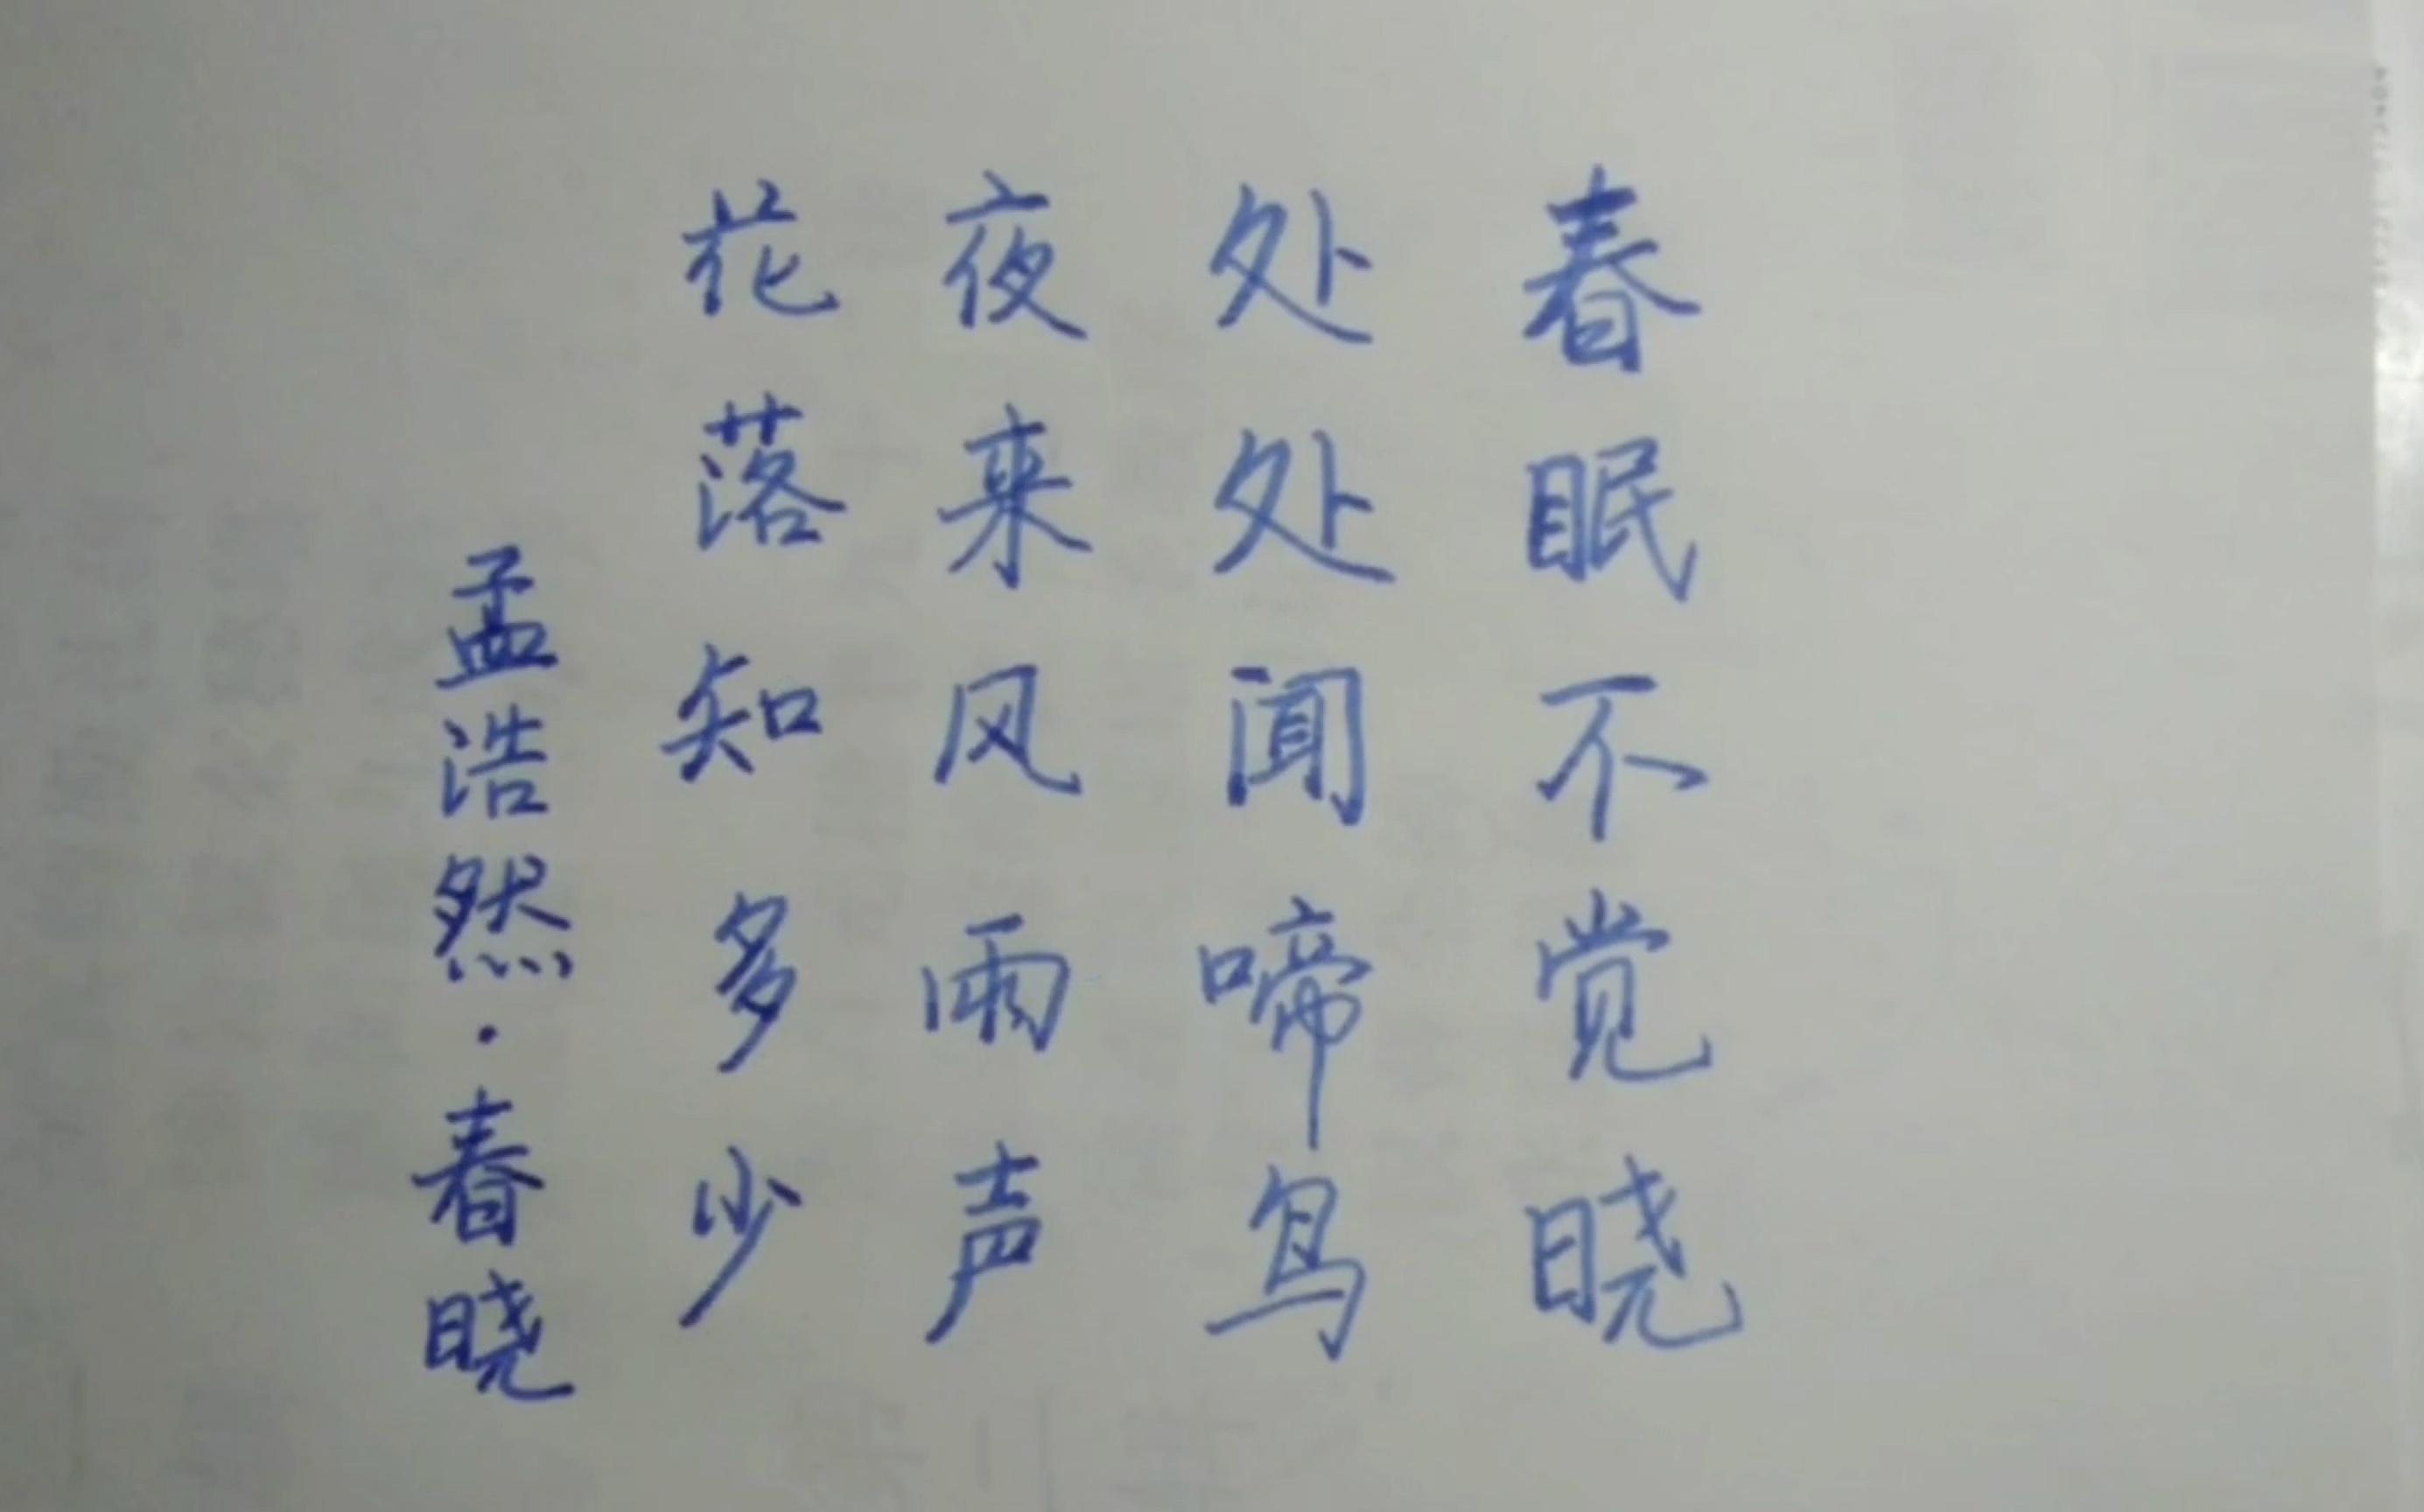 春眠不觉晓
处处闻啼鸟
夜来风雨声
花落知多少
孟浩然·春晓